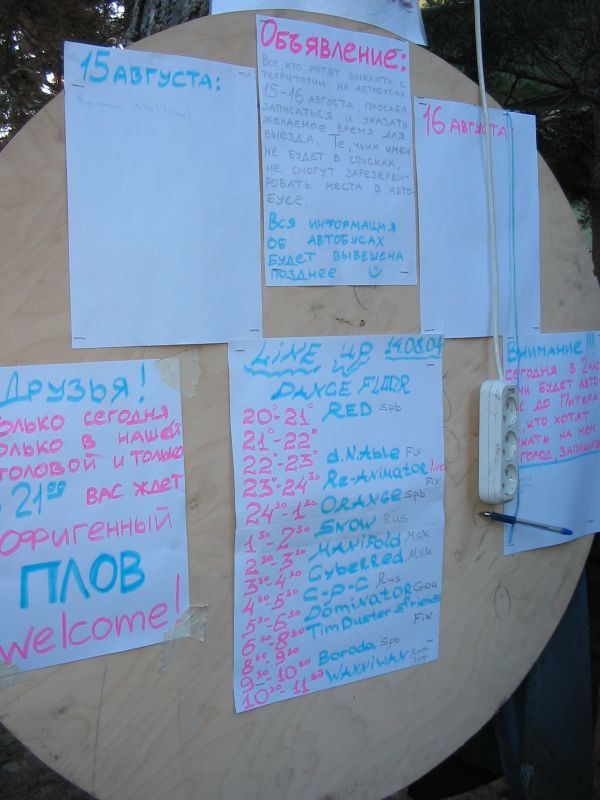 15 АВГУСТА:
Объявление:
Все, кто хотят выехать с
территории на автобусах
15-16 августа, просьба
записаться и указать
желаемое время для
выезда. Те, чьих имен
не будет в списках,
не смогут зарезерви-
ровать места в авто-
бусе.
Вся информация
об автобусах
будет вывешена
позднее.
16 АВГУСТА
Друзья!
олько сегодня
олько в нашей
толовой и только
21:00 вас ждет
офигенный
ПЛОВ
welcome!
LINE UP 14.08.04
DANCE FLOOR
20°-21° RED Spb
21°-22°
22°-23° d.N.Able
23°-24³⁰ Re-ANiMATOR
24³⁰-1³⁰ ORANGE Spb
1³⁰-2³⁰ SNOW Rus
2³⁰-3³⁰ MANiFold Msk
3³⁰-4³⁰ CybeRRed Msk
4³⁰-5³⁰ C-P-C Rus
5³⁰-6³⁰ DominATOR Goa
6³⁰-8³⁰ TIM DusteR &friends FiN
8³⁰-9³⁰
9³⁰-10³⁰ Boroda Spb
10³⁰-11³⁰ WANNiWAN
Внимание!!!
сегодня в 2
чи будет авто
с до Питера
кто хотят
ехать на нем
город, запишите